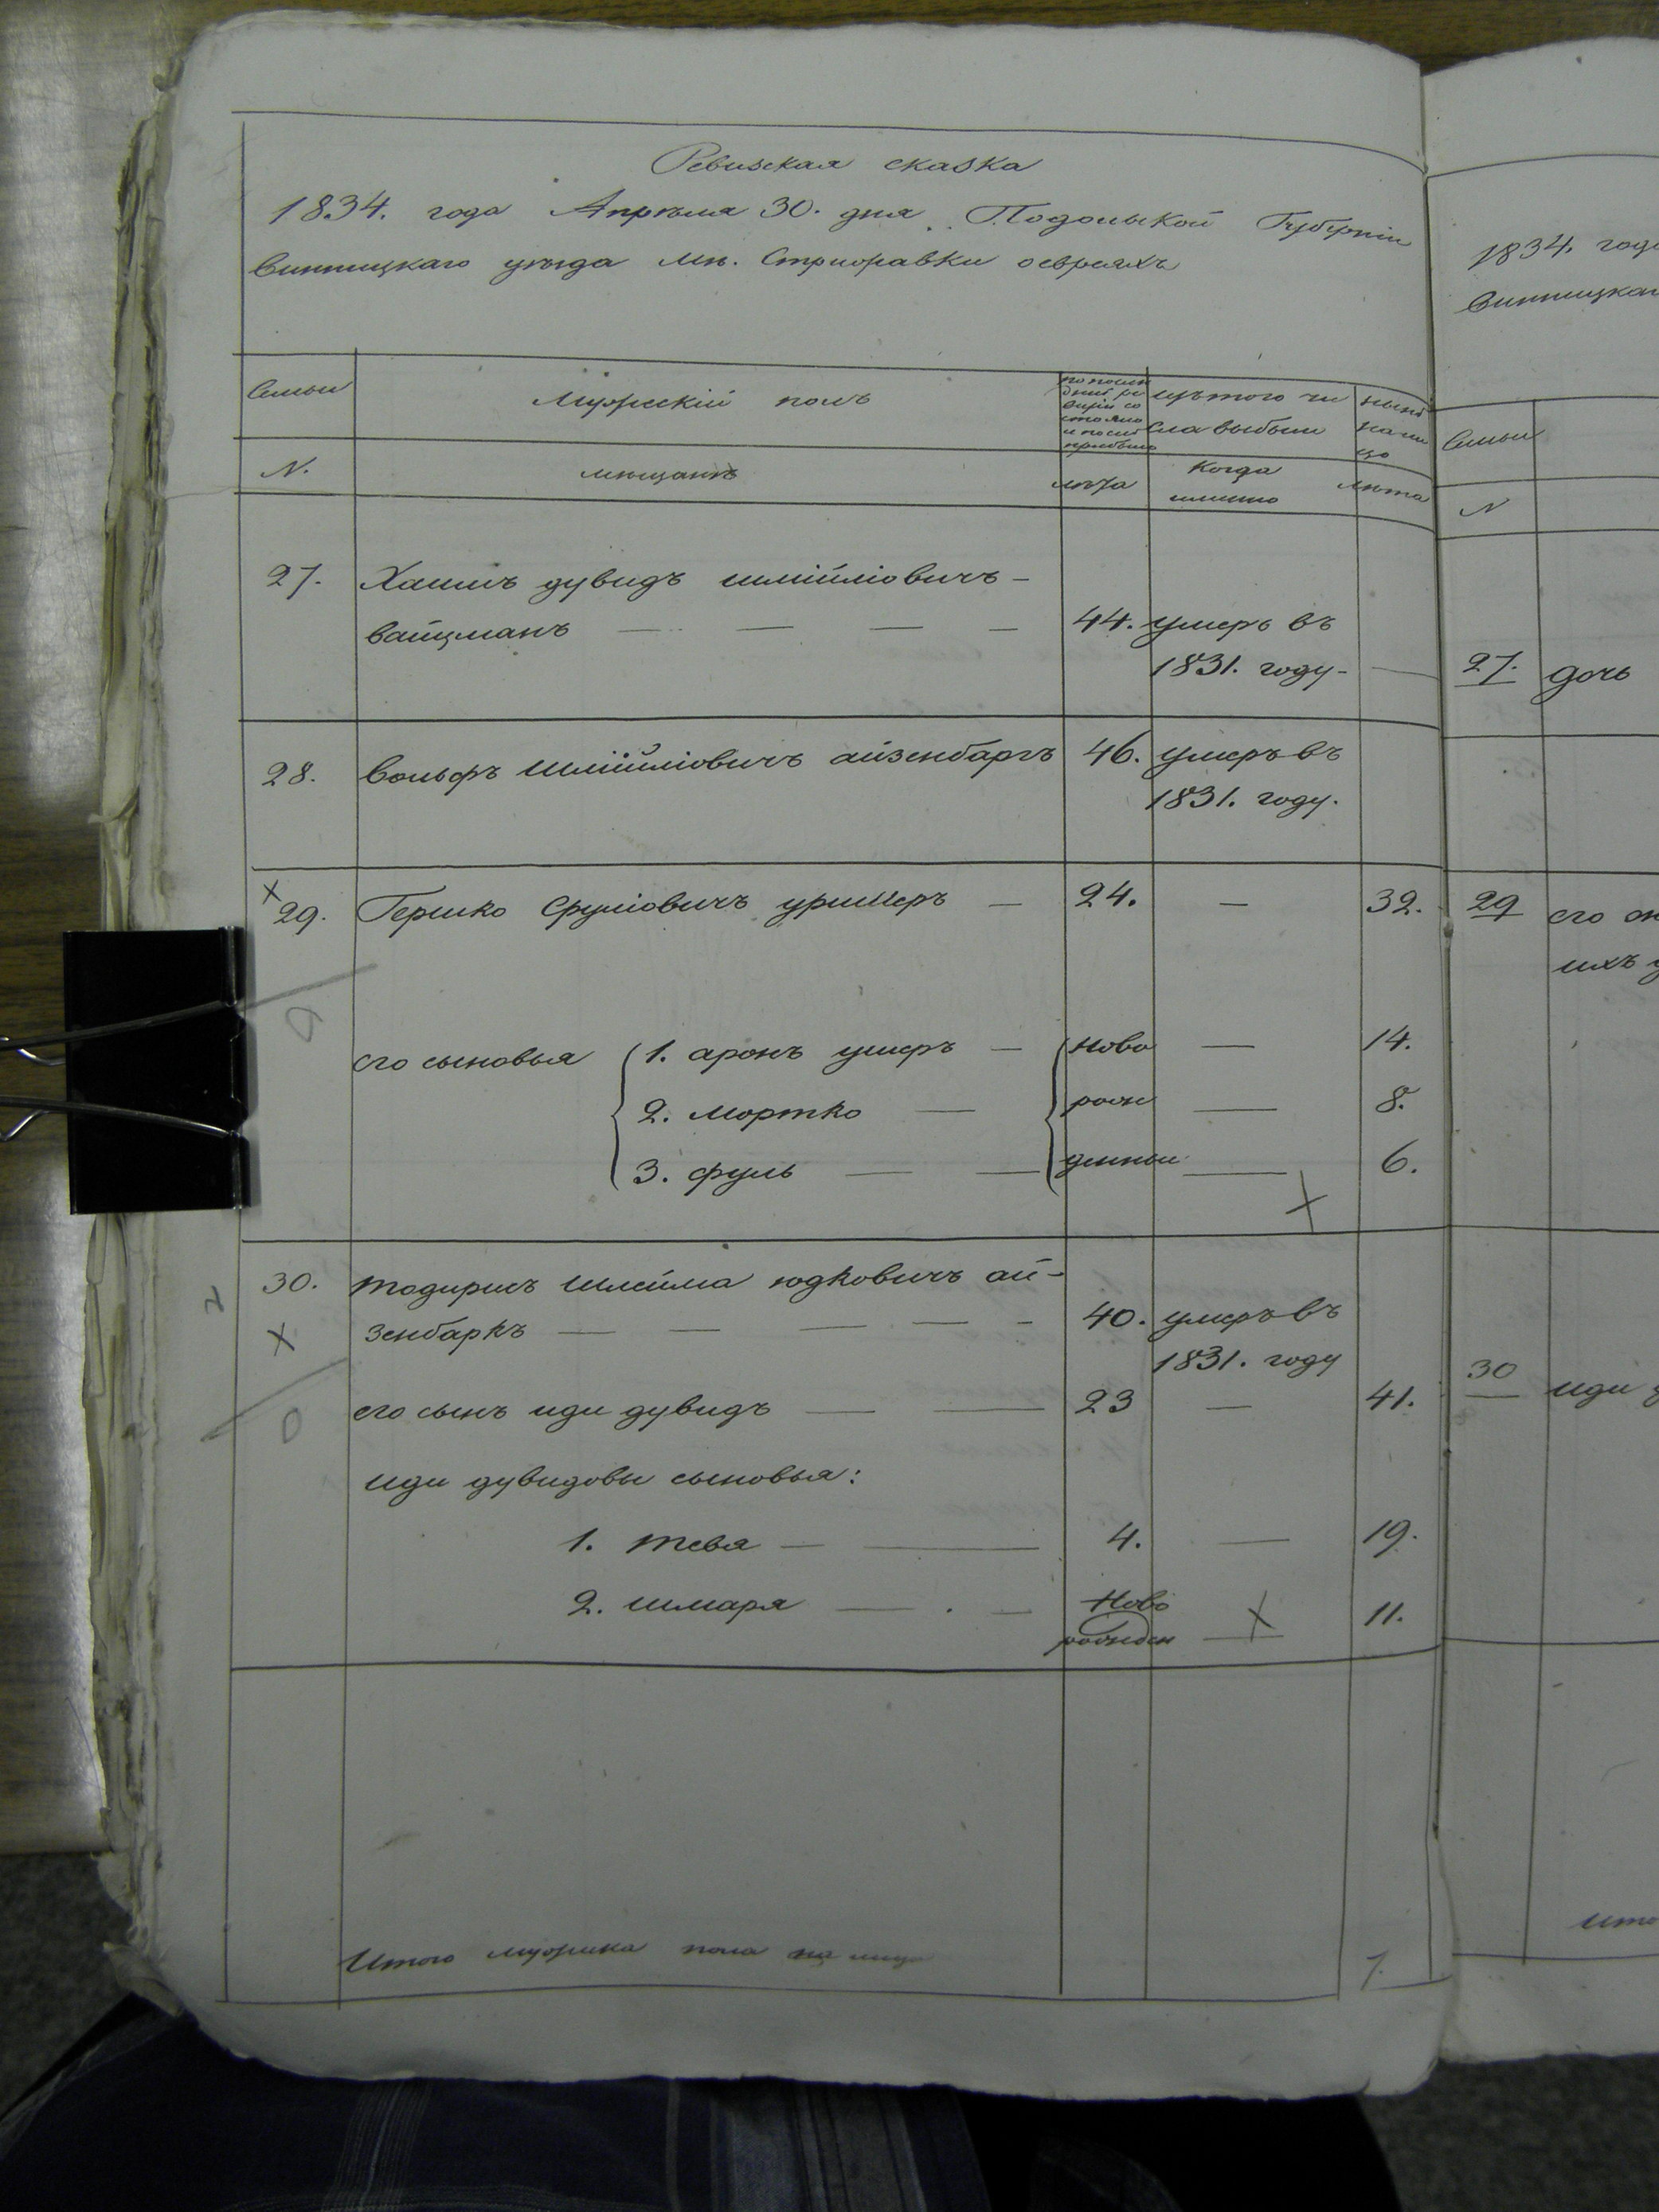 Ревизская сказка
1834. года Апрѣля 30. дня Подольской Губерніи
Винницкаго уѣзда мѣ. Стрижавки о евреяхъ
Семьи
Мужескій полъ
по послѣ
дней ре
визіи со
стояло
и послѣ
прибыло
изъ того чи
сла выбыли
нынѣ
на ли
цо
N.
мѣщанѣ
лѣта
Когда
именно
лѣта
27. Хаимъ дувидъ шмійліовичъ –
вайцманъ — — — — 44. умеръ въ
1831. году – —
28. Вольфъ Шмійліовичъ айзенбаргъ 46. умеръ въ
1831. году.
× 29. Гершко Сруліовичъ — 24. — 32.
его сыновья 1. аронъ ушеръ — Ново — 14.
2. мортко — рож — 8.
3. фуль — — денные — 6.
×
30. тодирисъ Шлейма юдковичъ ай-
× зенбаркъ — — — — — 40. умеръ въ
1831. году
его сынъ иди дувидъ — — 23 — 41.
иди дувидовы сыновья:
1. тевя — — 4. — 19.
2. шмаря — — Ново × 11.
рожден —
Итого мужеска пола на лицо 7.
1834. года
Винницкаг
Семьи
N
27. дочь
29 его
ихъ
30 иди
Ито